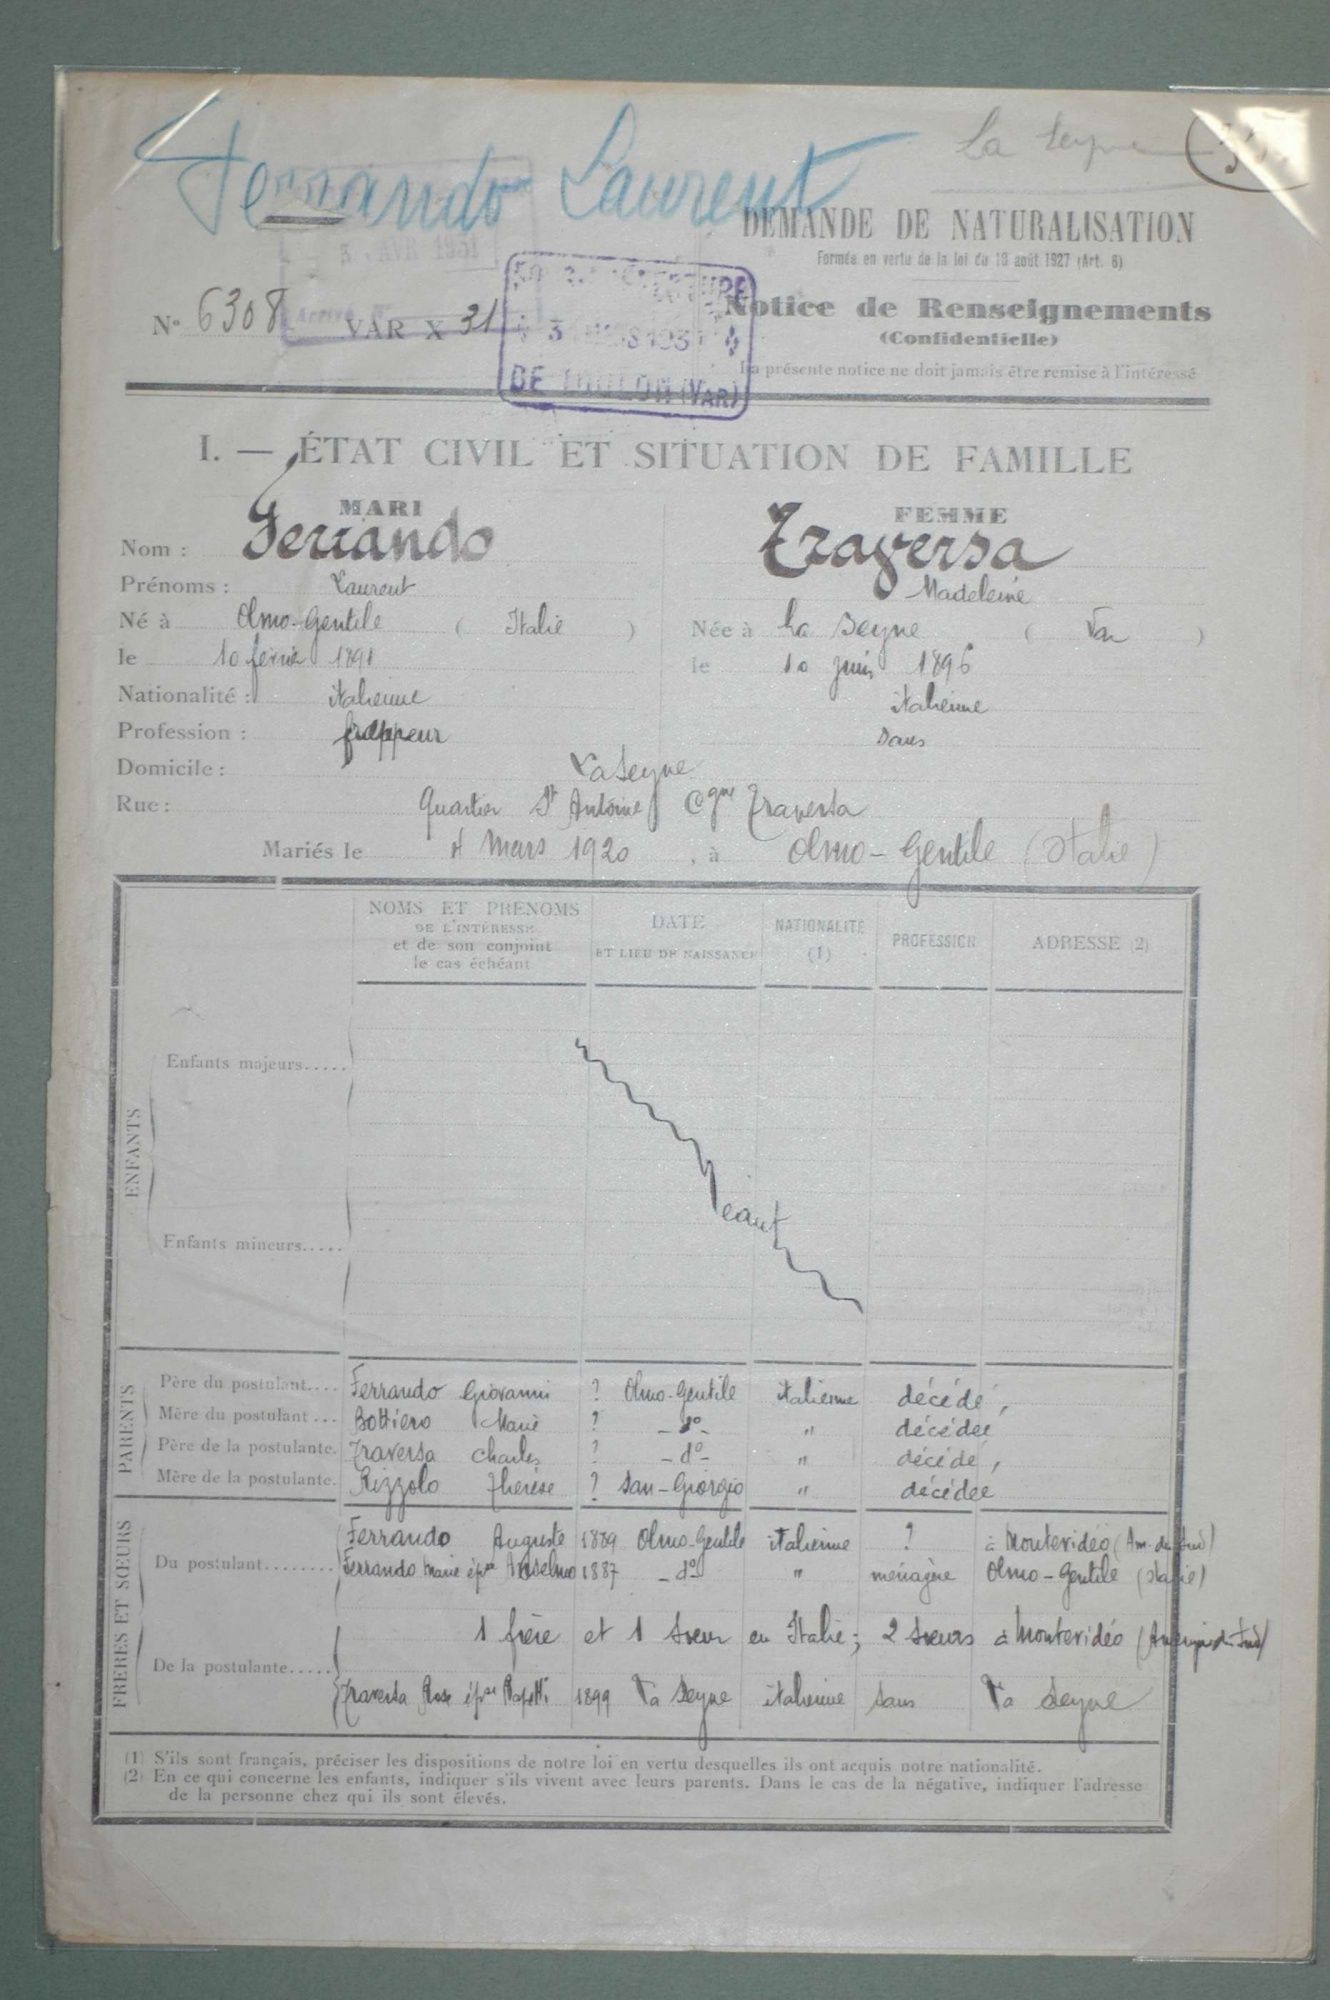 Ferrando Laurent
La Seyne
3 AVR 1931
Arrivé N°
DEMANDE DE NATURALISATION
Formée en vertu de la loi du 10 août 1927 (Art. 6)
N° 6308 VAR X 31
SOUS-PRÉFECTURE
3 MARS 1931
DE TOULON (VAR)
Notice de Renseignements
(Confidentielle)
La présente notice ne doit jamais être remise à l'intéressé
I. — ÉTAT CIVIL ET SITUATION DE FAMILLE
MARI FEMME
Nom : Ferrando Traversa
Prénoms : Laurent Madeleine
Né à Olmo-Gentile ( Italie ) Née à La Seyne ( Var )
le 10 février 1891 le 10 juin 1896
Nationalité : italienne italienne
Profession : frappeur sans
Domicile : La Seyne
Rue : Quartier St Antoine Cgne Traversa
Mariés le 4 Mars 1920, à Olmo-Gentile (Italie)
NOMS ET PRÉNOMS DE L'INTÉRESSÉ et de son conjoint le cas échéant DATE ET LIEU DE NAISSANCE NATIONALITÉ (1) PROFESSION ADRESSE (2)
ENFANTS
Enfants majeurs.....
Néant
Enfants mineurs.....
PARENTS
Père du postulant.... Ferrando Giovanni ? Olmo-Gentile italienne décédé,
Mère du postulant ... Bottiero Marie ? -d°- " décédée
Père de la postulante. Traversa Charles ? -d°- " décédé,
Mère de la postulante. Rizzolo Thérèse ? San-Giorgio " décédée
FRÈRES ET SŒURS
Du postulant........ Ferrando Auguste 1889 Olmo-Gentile italienne ? à Montevidéo (Am. du Sud)
Ferrando Marie épse Anselmo 1887 -d° " ménagère Olmo-Gentile (Italie)
De la postulante.....
1 frère et 1 sœur en Italie; 2 sœurs à Montevidéo (Amérique du Sud)
Traversa Rose épse Rapetti 1899 La Seyne italienne sans La Seyne
(1) S'ils sont français, préciser les dispositions de notre loi en vertu desquelles ils ont acquis notre nationalité.
(2) En ce qui concerne les enfants, indiquer s'ils vivent avec leurs parents. Dans le cas de la négative, indiquer l'adresse
de la personne chez qui ils sont élevés.